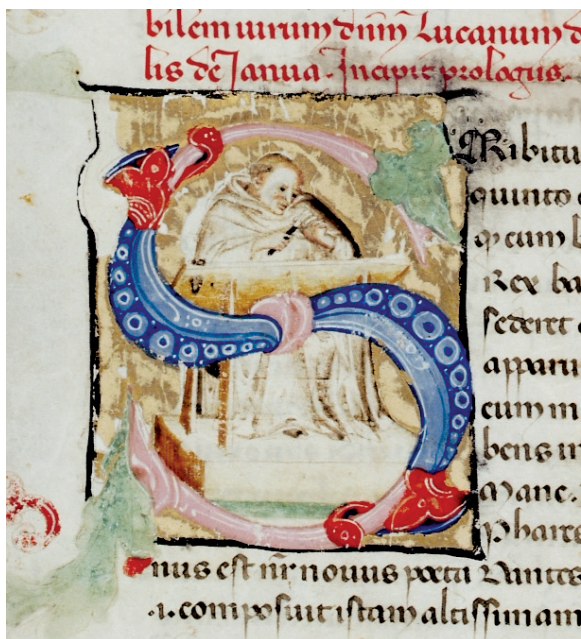 bilem uirum dnm Lucanum d
lis de Janua. Incipit prologus.
SCribitu
quinto
q cum b
Rex ba
sederet
apparu
eum in
bens in
Mane.
Phares
nus est nr nouus poeta Dantes
.i. composuit istam altissimam